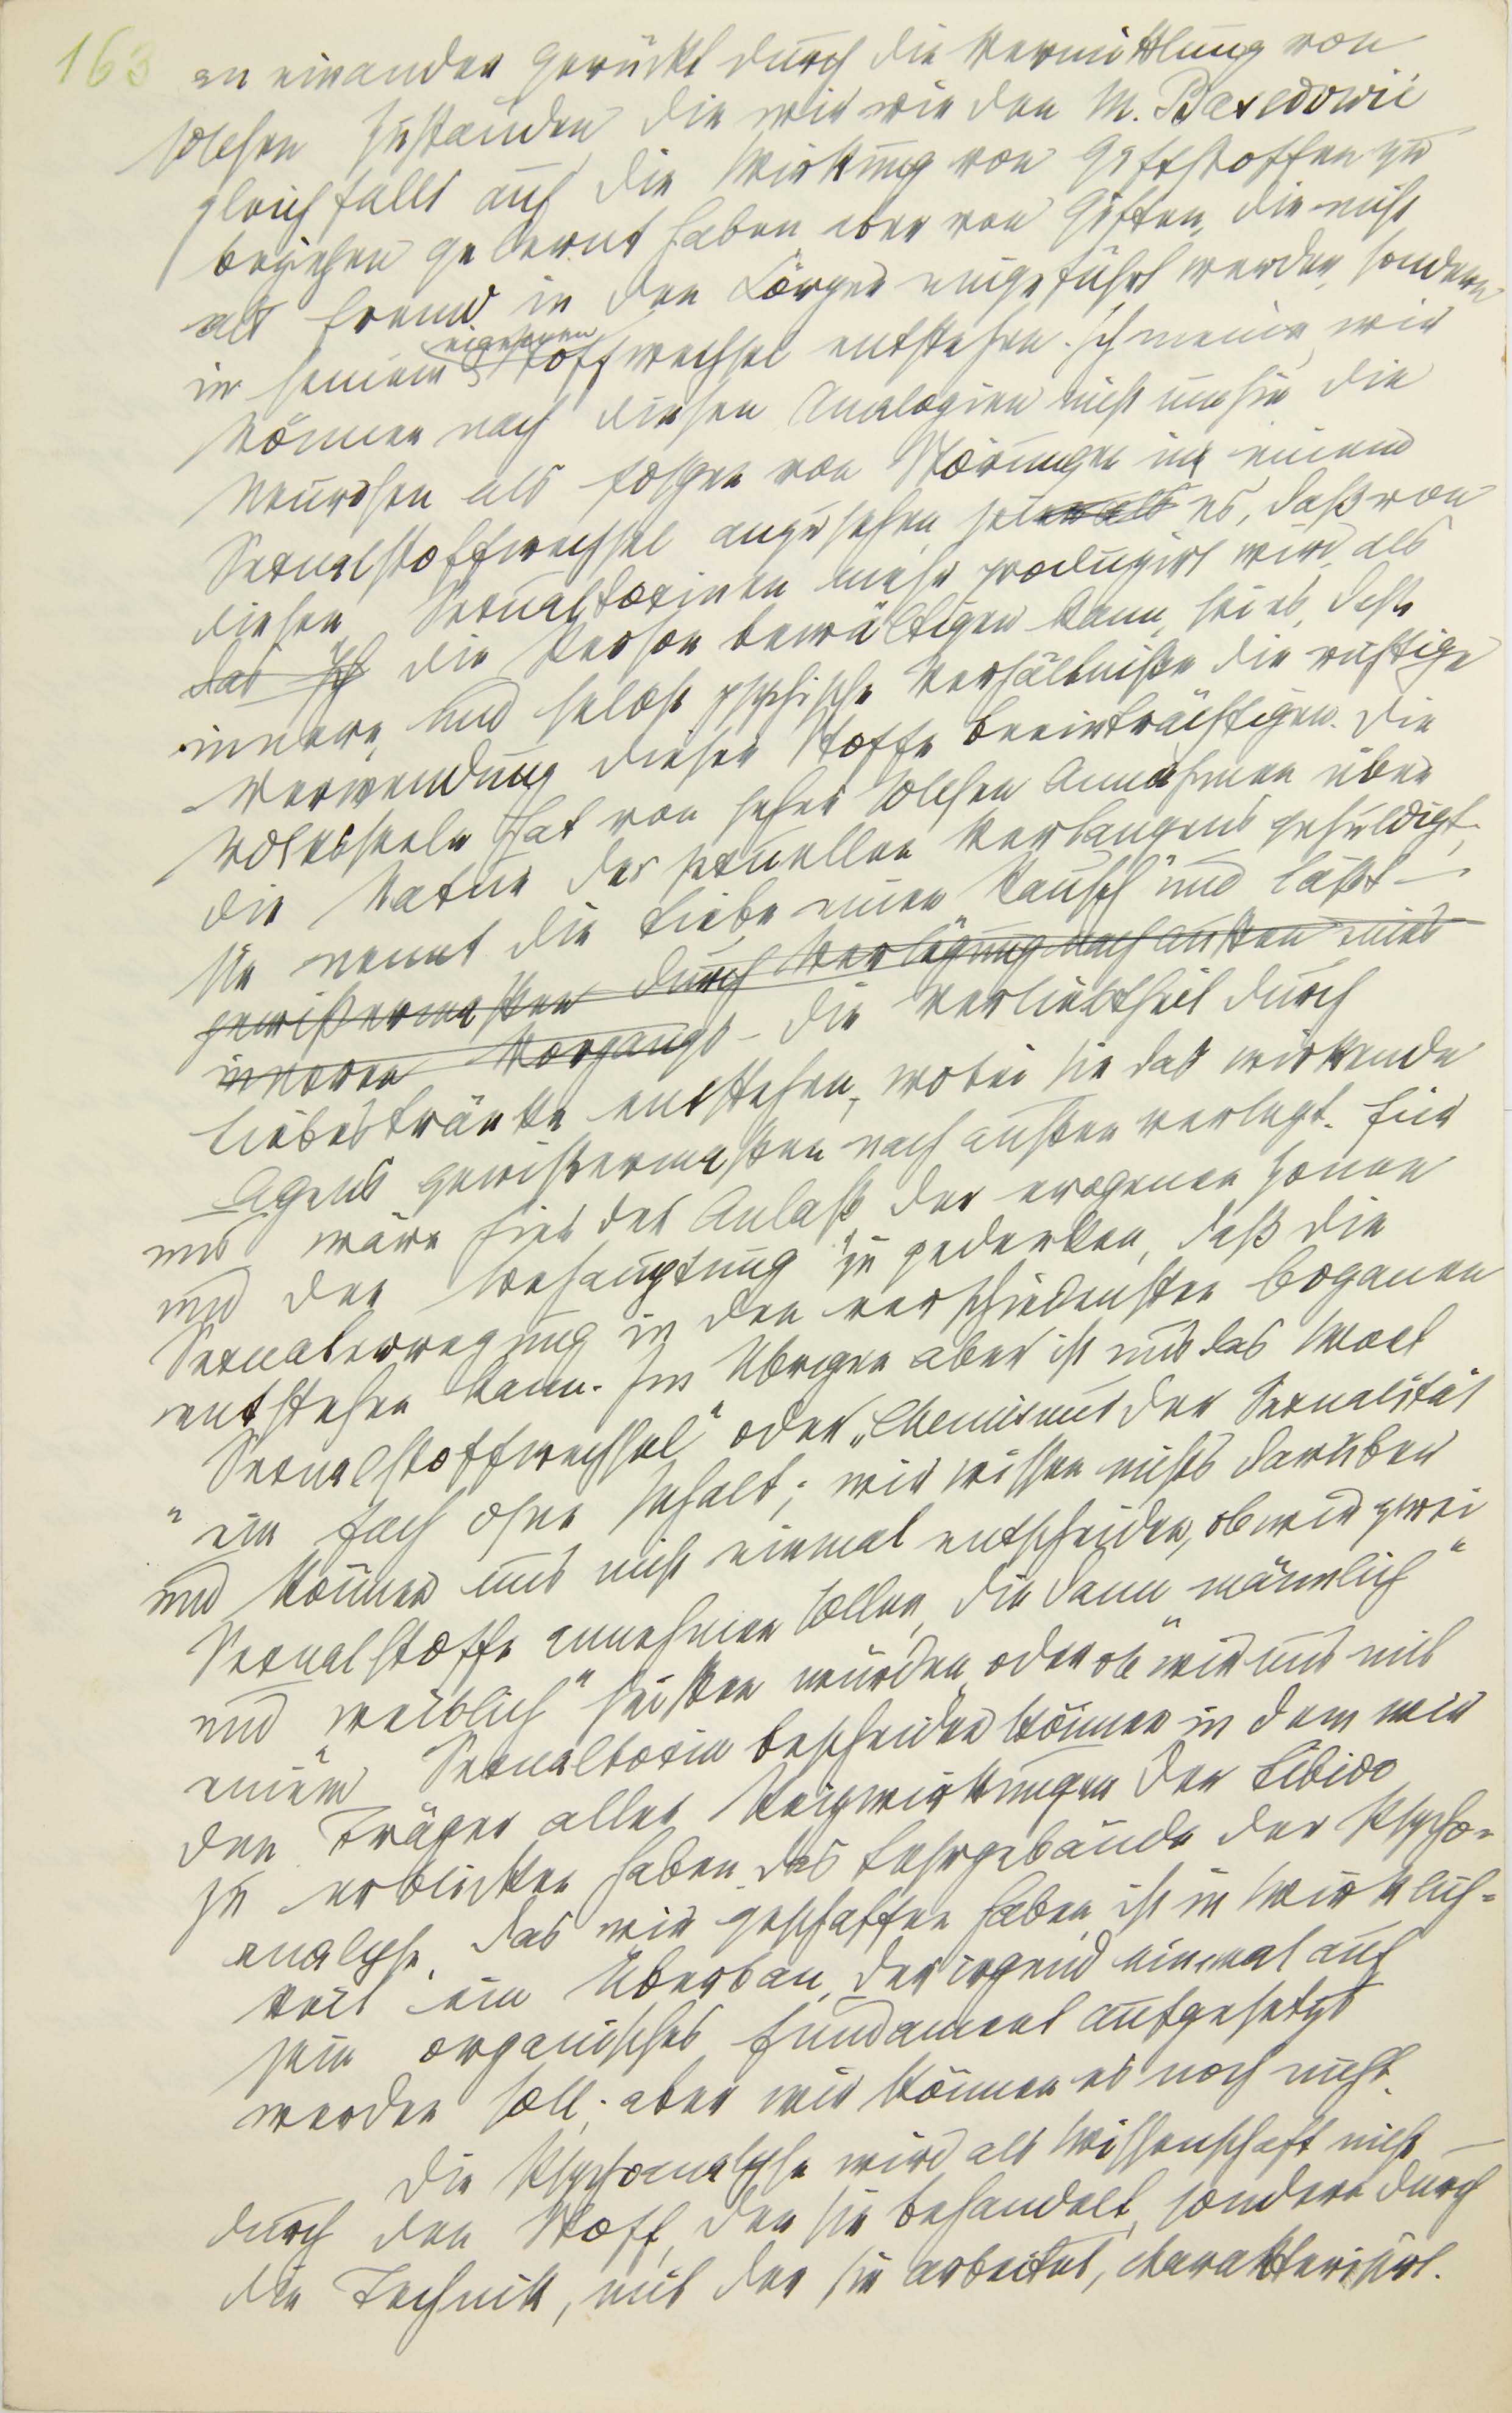 163 an einander gerückt durch die Vermittlung von
solchen Zuständen die wir wie den M. Basedowii
gleichfalls auf die Wirkung von Giftstoffen zu
beziehen gelernt haben aber von Giften, die nicht
als fremd in den Körper eingeführt werden, sondern
in seinem eigenen Stoffwechsel entstehen. Ich meine, wir
können nach diesen Analogien nicht umhin die
Neurosen als Folgen von Störungen in einem
Sexualstoffwechsel anzusehen, sei es, daß von
diesen Sexualtoxinen mehr produzirt wird als
das Ich die Person bewältigen kann, sei es, daß
innere und selbst psychische Verhältniße die richtige
Verwendung dieser Stoffe beeinträchtigen. Die
Volksseele hat von jeher solchen Annahmen über
die Natur des sexuellen Verlangens gehuldigt,
sie nennt die Liebe einen „Rausch“ und läßt –
gewißermaßen durch Verlegung nach außen eines
inneren Vorgangs – die Verliebtheit durch
Liebestränke entstehen, wobei sie das wirkende
Agens gewißermaßen nach außen verlegt. Für
uns wäre hier der Anlaß, der erogenen Zonen
und der Behauptung zu gedenken, daß die
Sexualerregung in den verschiedensten Organen
entstehen kann. Im Übrigen aber ist uns das Wort
„Sexualstoffwechsel“ oder „Chemismus der Sexualität“
ein Fach ohne Inhalt; wir wissen nichts darüber
und können uns nicht einmal entscheiden, ob wir zwei
Sexualstoffe annehmen sollen, die dann „männlich“
und „weiblich“ heißen würden, oder ob wir uns mit
einem Sexualtoxin bescheiden können in dem wir
den Träger aller Reizwirkungen der Libido
zu erblicken haben. Das Lehrgebäude der Psycho-
analyse, das wir geschaffen haben ist in Wirklich-
keit ein Überbau, der irgend einmal auf
sein organisches Fundament aufgesetzt
werden soll; aber wir können es noch nicht.
Die Psychoanalyse wird als Wissenschaft nicht –
durch den Stoff, den sie behandelt, sondern durch
die Technik, mit der sie arbeitet, charakterisirt.